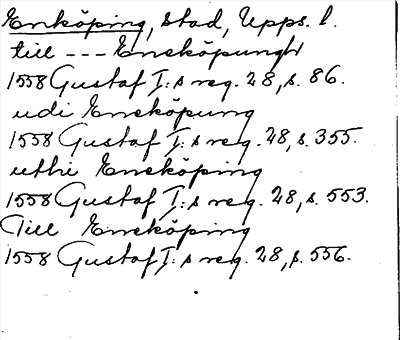 Enköping, stad, Upps. l.
till --- Eneköpungh
1558 Gustaf I:s reg. 28, s. 86.
udi Eneköpung
1558 Gustaf I:s reg. 28, s. 355.
uthi Eneköping
1558 Gustaf I:s reg. 28, s. 553.
Till Eneköping
1558 Gustaf I:s reg. 28, s. 556.